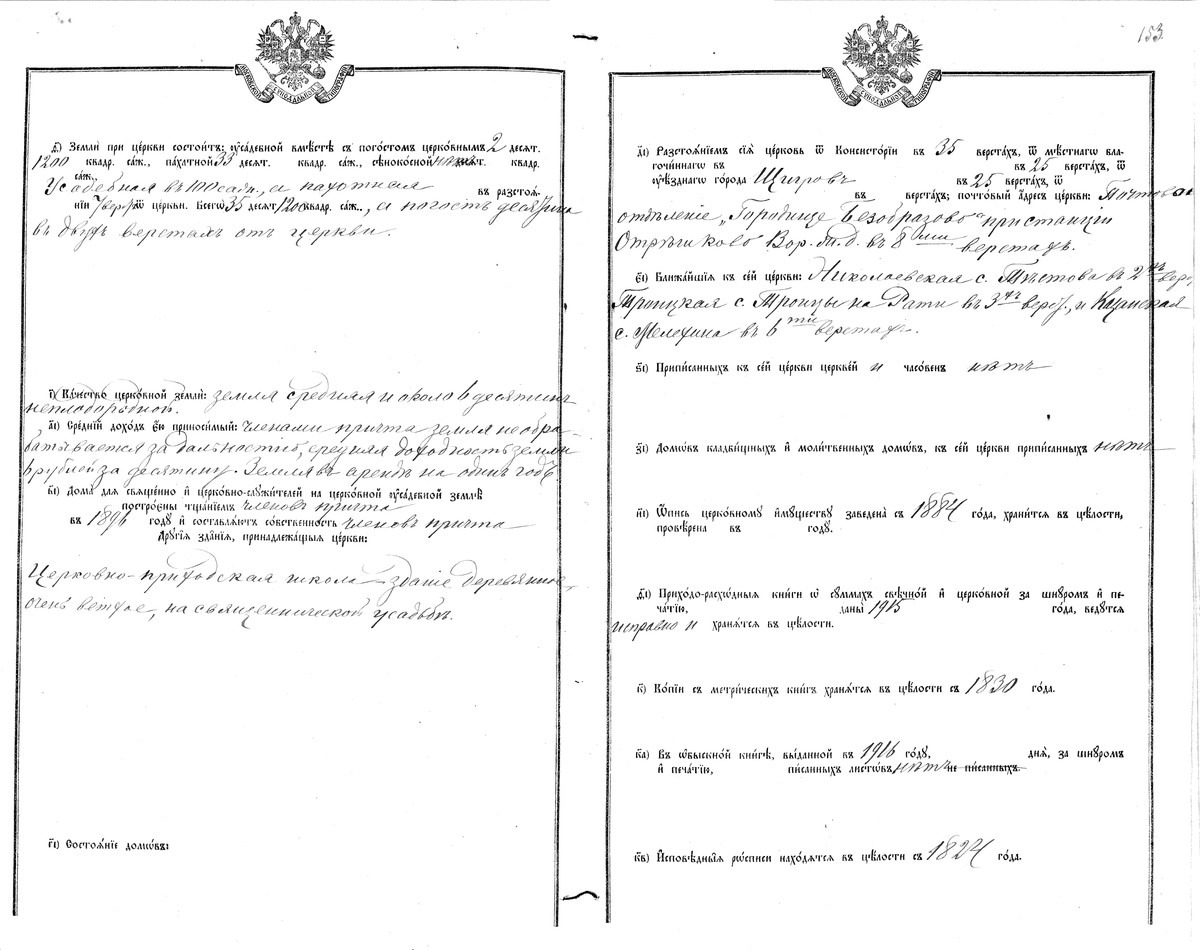 МОСКОВСКОЙ СѴНОДАЛЬНОЙ ТИПОГРАФІИ
ѳ҃) Землѝ при це́ркви состои́тъ: ᲂу҆са́дебной вмѣ́стѣ съ пого́стомъ церко́внымъ 2 десят.
1200 квадр. са́ж., па́хатной 33 десят. квадр. са́ж., сѣноко́сной нѣтъ десят. квадр.
са́ж.,
Усадебная въ 100 саж., а пахотная въ разстоѧ́-
нїи 7 верст. ѿ це́ркви. Всегѡ̀ 35 десят. 1200 квадр. са́ж., а погостъ десятина
въ двухъ верстахъ отъ церкви.
і҃) Ка́чество церко́вной землѝ: земля средняя и около 6 десятинъ
неплодородной.
а҃і) Сре́днїй дохо́дъ е҆́ю приноси́мый: членами причта земля необра-
батывается за дальностію, средняя доходность земли
рублей за десятину. Земля въ арендѣ на одинъ годъ.
в҃і) Дома̀ для свяще́нно и҆ церко́вно-служи́телей на церко́вной ᲂу҆са́дебной землѣ̀
постро́ены тща́нїемъ членовъ причта
въ 1896 годꙋ̀ и҆ составлѧ́ютъ со́бственность членовъ причта
Дрꙋгі́ѧ зда̑нїѧ, принадлежа́щыѧ це́ркви:
Церковно-приходская школа – зданіе деревянное,
очень ветхое, на священнической усадьбѣ.
г҃і) Состоѧ́нїе домѡ́въ:
153
МОСКОВСКОЙ СѴНОДАЛЬНОЙ ТИПОГРАФІИ
д҃і) Разстоѧ́нїемъ сїѧ̀ це́рковь ѿ Консисто́рїи въ 35 верста́хъ, ѿ мѣ́стнагѡ бла-
гочи́ннагѡ въ въ 25 верста́хъ, ѿ
ᲂу҆ѣ́зднагѡ го́рода Щигровъ въ 25 верста́хъ, ѿ
въ верста́хъ; почто́вый а́дресъ це́ркви: Почтовое
отдѣленіе „Городище Безобразово“ при станціи
Отрѣшково Вор. ж. д. въ 8ми верстахъ.
е҃і) Ближа́йшїѧ къ се́й це́ркви: Николаевская с. въ 2хъ верс.,
Троицкая с. Троицы на Рати въ 3хъ верст., и Казанская
с. Мелехина въ 6ти верстахъ.
ѕ҃і) Припи́санныхъ къ се́й це́ркви церкве́й и часо́вен нѣтъ
з҃і) Домѡ́въ кла́дбищныхъ и҆ моли́твенныхъ домѡ́въ, къ се́й це́ркви припи́санныхъ нѣтъ
и҃і) Ѻ҆́пись церко́вномꙋ и҆мꙋ́ществꙋ заведена̀ съ 1884 го́да, храни́тся въ цѣ́лости,
провѣ́рена въ го́дꙋ.
ѳ҃і) Прихо́до-расхѡ́дныя кни́ги ѡ҆ сꙋ́ммахъ свѣчно́й и҆ церко́вной за шнꙋро́мъ и҆ пе-
ча́тїю, даны̀ 1915 го́да, ведꙋ́тся
исправно и храня́тся въ цѣ́лости.
к҃) Ко́пїи съ метри́ческихъ кни́гъ храня́тся въ цѣ́лости съ 1830 го́да.
к҃а) Въ ѡ҆быскно́й кни́гѣ, вы́данной въ 1916 го́дꙋ, днѧ̀, за шнꙋро́мъ
и҆ печа́тїю, пи́санныхъ листѡ́въ, нѣтъ не пи́санныхъ.
к҃в) И҆сповѣ̑дныѧ рѡ́списи нахо́дятся въ цѣ́лости съ 1824 го́да.